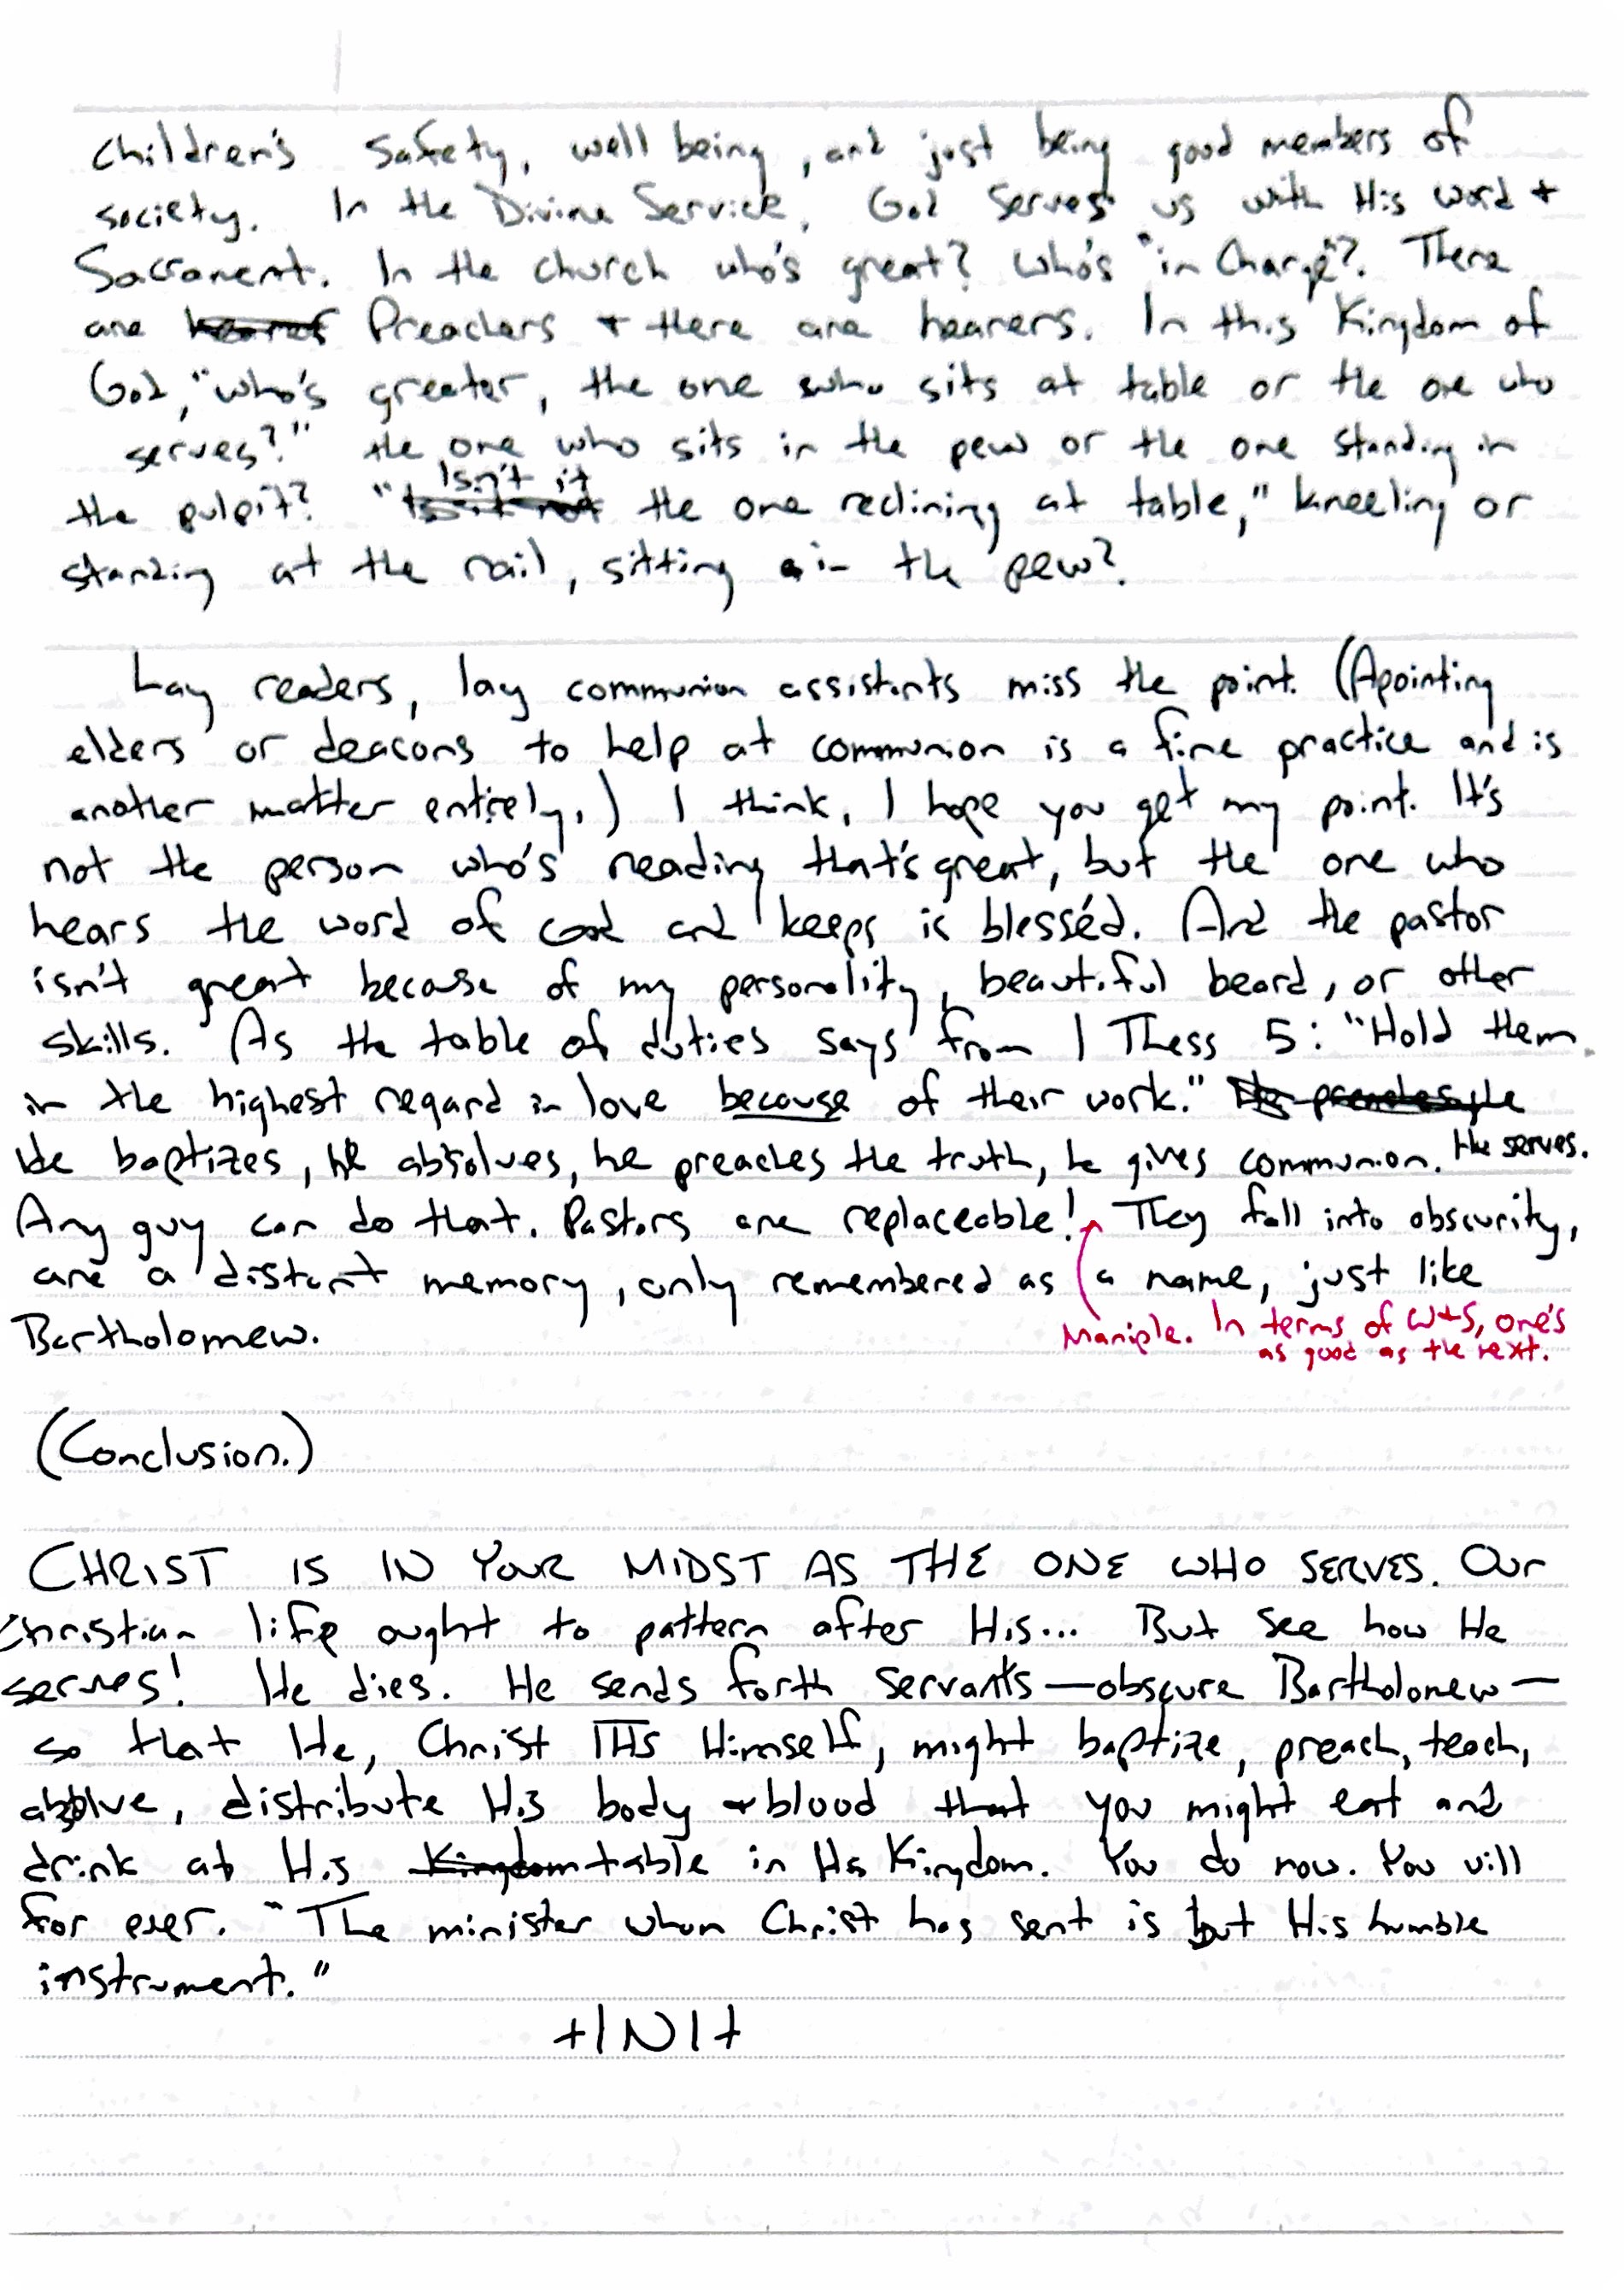 Children's safety, well being, and just being good members of
society. In the Divine Service, God serves us with His word +
Sacrament. In the church who's great? Who's "in Charge"?. There
are Preachers + there are hearers. In this Kingdom of
God, "who's greater, the one who sits at table or the one who
serves?" the one who sits in the pew or the one standing in
the pulpit? "Isn't it the one reclining at table," kneeling or
standing at the rail, sitting in the pew?
Lay readers, lay communion assistants miss the point. (Apointing
elders or deacons to help at communion is a fine practice and is
another matter entirely.) I think, I hope you get my point. It's
not the person who's reading that's great, but the one who
hears the word of God and keeps is blesséd. And the pastor
isn't great because of my personality, beautiful beard, or other
skills. As the table of duties says from 1 Thess 5: "Hold them
in the highest regard in love because of their work."
He baptizes, he absolves, he preaches the truth, he gives communion. He serves.
Any guy can do that. Pastors are replaceable! They fall into obscurity,
are a distant memory, only remembered as a name, just like
Bartholomew.
Maniple. In terms of W+S, one's
as good as the next.
(Conclusion.)
CHRIST IS IN YOUR MIDST AS THE ONE WHO SERVES. Our
Christian life ought to pattern after His... But see how He
serves! He dies. He sends forth servants—obscure Bartholomew—
so that He, Christ IHS Himself, might baptize, preach, teach,
absolve, distribute His body + blood that you might eat and
drink at His table in His Kingdom. You do now. You will
for ever. "The minister whom Christ has sent is but His humble
instrument."
+INI+